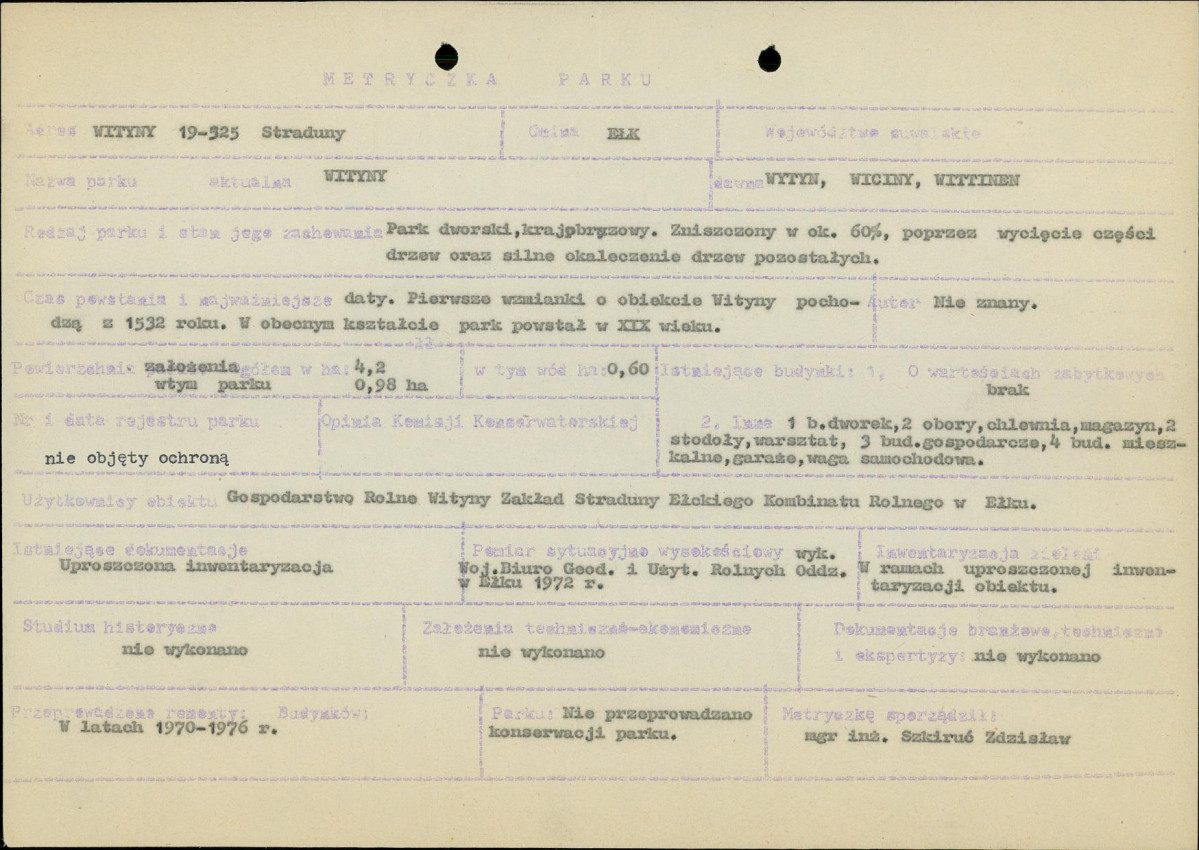 METRYCZKA PARKU
Adres WITYNY 19-325 Straduny Gmina EŁK Województwo suwalskie
Nazwa parku aktualna WITYNY dawna WYTYN, WICINY, WITTINEN
Rodzaj parku i stan jego zachowania Park dworski,krajobrazowy. Zniszczony w ok. 60%, poprzez wycięcie części
drzew oraz silne okaleczenie drzew pozostałych.
Czas powstania i najważniejsze daty. Pierwsze wzmianki o obiekcie Wityny pocho- Autor Nie znany.
dzą z 1532 roku. W obecnym kształcie park powstał w XIX wieku.
Powierzchnia założenia ogółem w ha: 4,2 w tym wód ha: 0,60 Istniejące budynki: 1. O wartościach zabytkowych
wtym parku 0,98 ha brak
Nr i data rejestru parku Opinia Komisji Konserwatorskiej 2. Inne 1 b.dworek,2 obory,chlewnia,magazyn,2
stodoły,warsztat, 3 bud.gospodarcze,4 bud. miesz-
nie objęty ochroną kalne,garaże,waga samochodowa.
Użytkownicy obiektu Gospodarstwo Rolne Wityny Zakład Straduny Ełckiego Kombinatu Rolnego w Ełku.
Istniejące dokumentacje Pomiar sytuacyjno wysokościowy wyk. Inwentaryzacja zieleni
Uproszczona inwentaryzacja Woj.Biuro Geod. i Użyt. Rolnych Oddz. W ramach uproszczonej inwen-
w Ełku 1972 r. taryzacji obiektu.
Studium historyczne Założenia techniczno-ekonomiczne Dokumentacje branżowe,techniczne
nie wykonano nie wykonano i ekspertyzy: nie wykonano
Przeprowadzone remonty: Budynków: Parku: Nie przeprowadzano Metryczkę sporządził:
W latach 1970-1976 r. konserwacji parku. mgr inż. Szkiruć Zdzisław